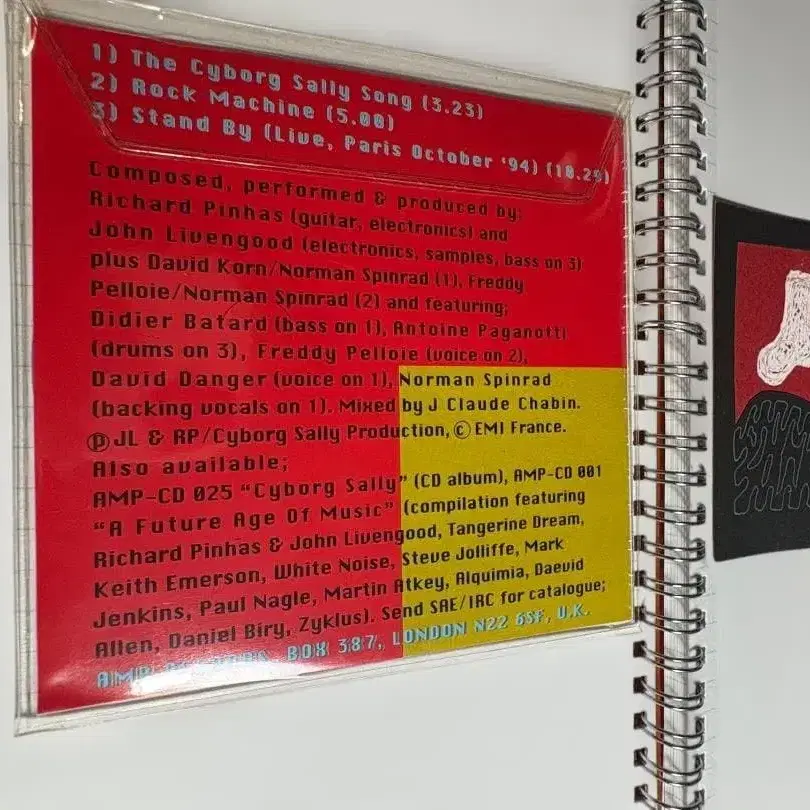 1) The Cyborg Sally Song (3.23)
2) Rock Machine (5.00)
3) Stand By (Live, Paris October '94) (10.29)
Composed, performed & produced by;
Richard Pinhas (guitar, electronics) and
John Livengood (electronics, samples, bass on 3)
plus David Korn/Norman Spinrad (1), Freddy
Pelloie/Norman Spinrad (2) and featuring;
Didier Batard (bass on 1), Antoine Paganotti
(drums on 3), Freddy Pelloie (voice on 2),
David Danger (voice on 1), Norman Spinrad
(backing vocals on 1). Mixed by J Claude Chabin.
℗ JL & RP/Cyborg Sally Production, © EMI France.
Also available;
AMP-CD 025 “Cyborg Sally” (CD album), AMP-CD 001
“A Future Age Of Music” (compilation featuring
Richard Pinhas & John Livengood, Tangerine Dream,
Keith Emerson, White Noise, Steve Jolliffe, Mark
Jenkins, Paul Nagle, Martin Atkey, Alquimia, Daevid
Allen, Daniel Biry, Zyklus). Send SAE/IRC for catalogue;
AMP BOX 387, LONDON N22 6SF, U.K.